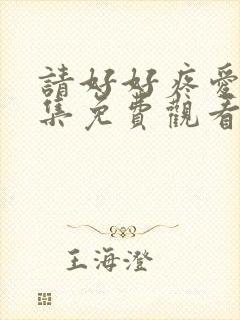 請好好疼愛
集免費觀看
王海澄